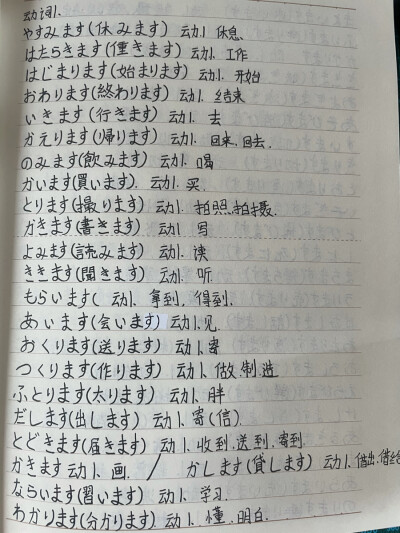 动词1.
やすみます(休みます) 动1. 休息.
はたらきます(働きます) 动1. 工作
はじまります(始まります) 动1. 开始
おわります(終わります) 动1. 结束
いきます(行きます) 动1. 去
かえります(帰ります) 动1. 回来.回去.
のみます(飲みます) 动1. 喝
かいます(買います). 动1. 买.
とります(撮ります) 动1. 拍照.拍摄.
かきます(書きます) 动1 写
よみます(読みます) 动1. 读
ききます(聞きます) 动1. 听
もらいます( 动1. 拿到. 得到.
あいます(会います) 动1.见
おくります(送ります) 动1.寄
つくります(作ります) 动1. 做.制造
ふとります(太ります) 动1. 胖
だします(出します) 动1. 寄(信).
とどきます(届きます) 动1. 收到.送到.寄到.
かきます 动1. 画. / かします(貸します) 动1.借出.借给
ならいます(習います) 动1. 学习.
わかります(分かります) 动1. 懂.明白.